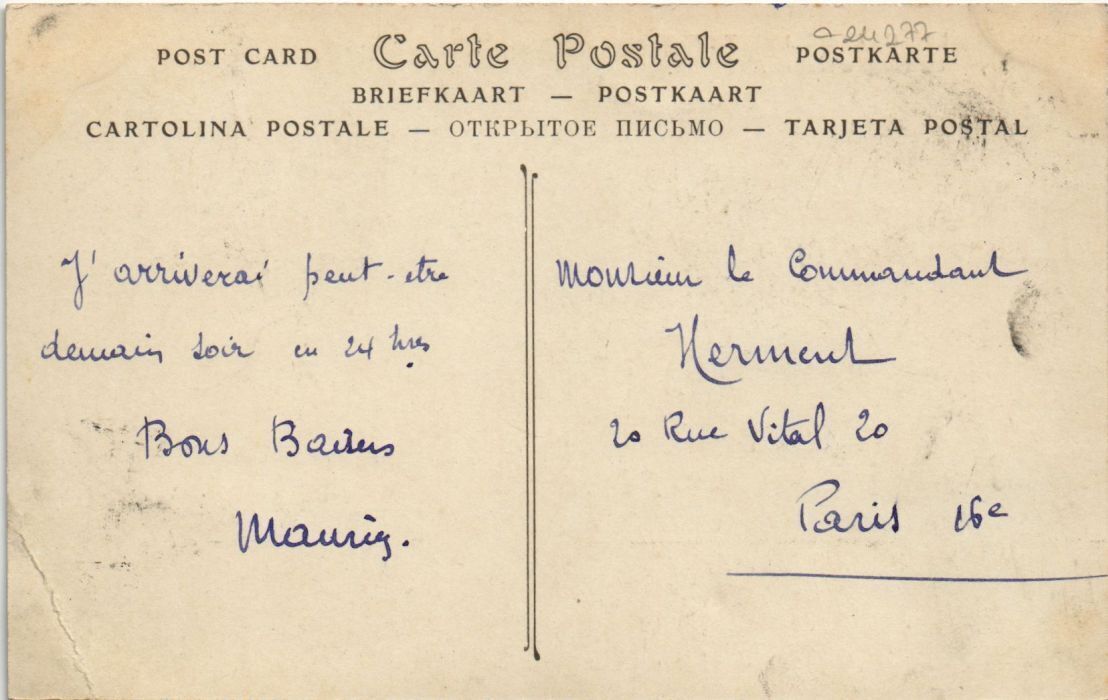 24277
POST CARD Carte Postale POSTKARTE
BRIEFKAART — POSTKAART
CARTOLINA POSTALE — ОТКРЫТОЕ ПИСЬМО — TARJETA POSTAL
J'arriverai peut-etre
demain soir en 24 hres
Bons Baisers
Monsieur le Commandant
Herment
20 Rue Vital 20
Paris 16e